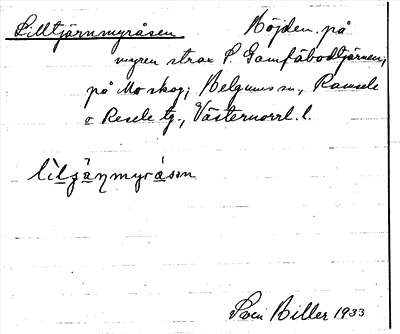 Lilltjärnmyråsen Höjden på
myren strax S. Gamfäbodtjärnen,
på Mo skog; Helgums sn., Ramsele
o Resele tg., Västernorrl. l.
lìlʒä̀ŋmyråsən
Sven Hiller 1933